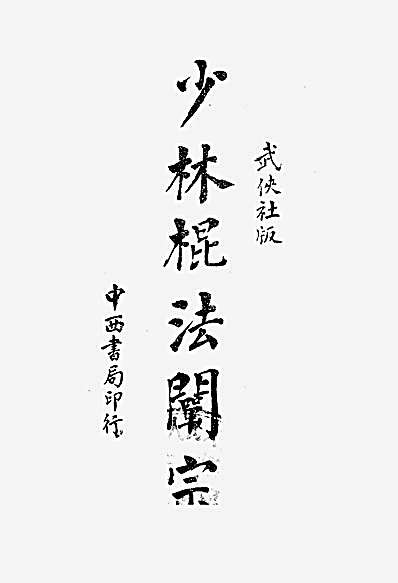 武俠社版
少林棍法闡宗
中西書局印行